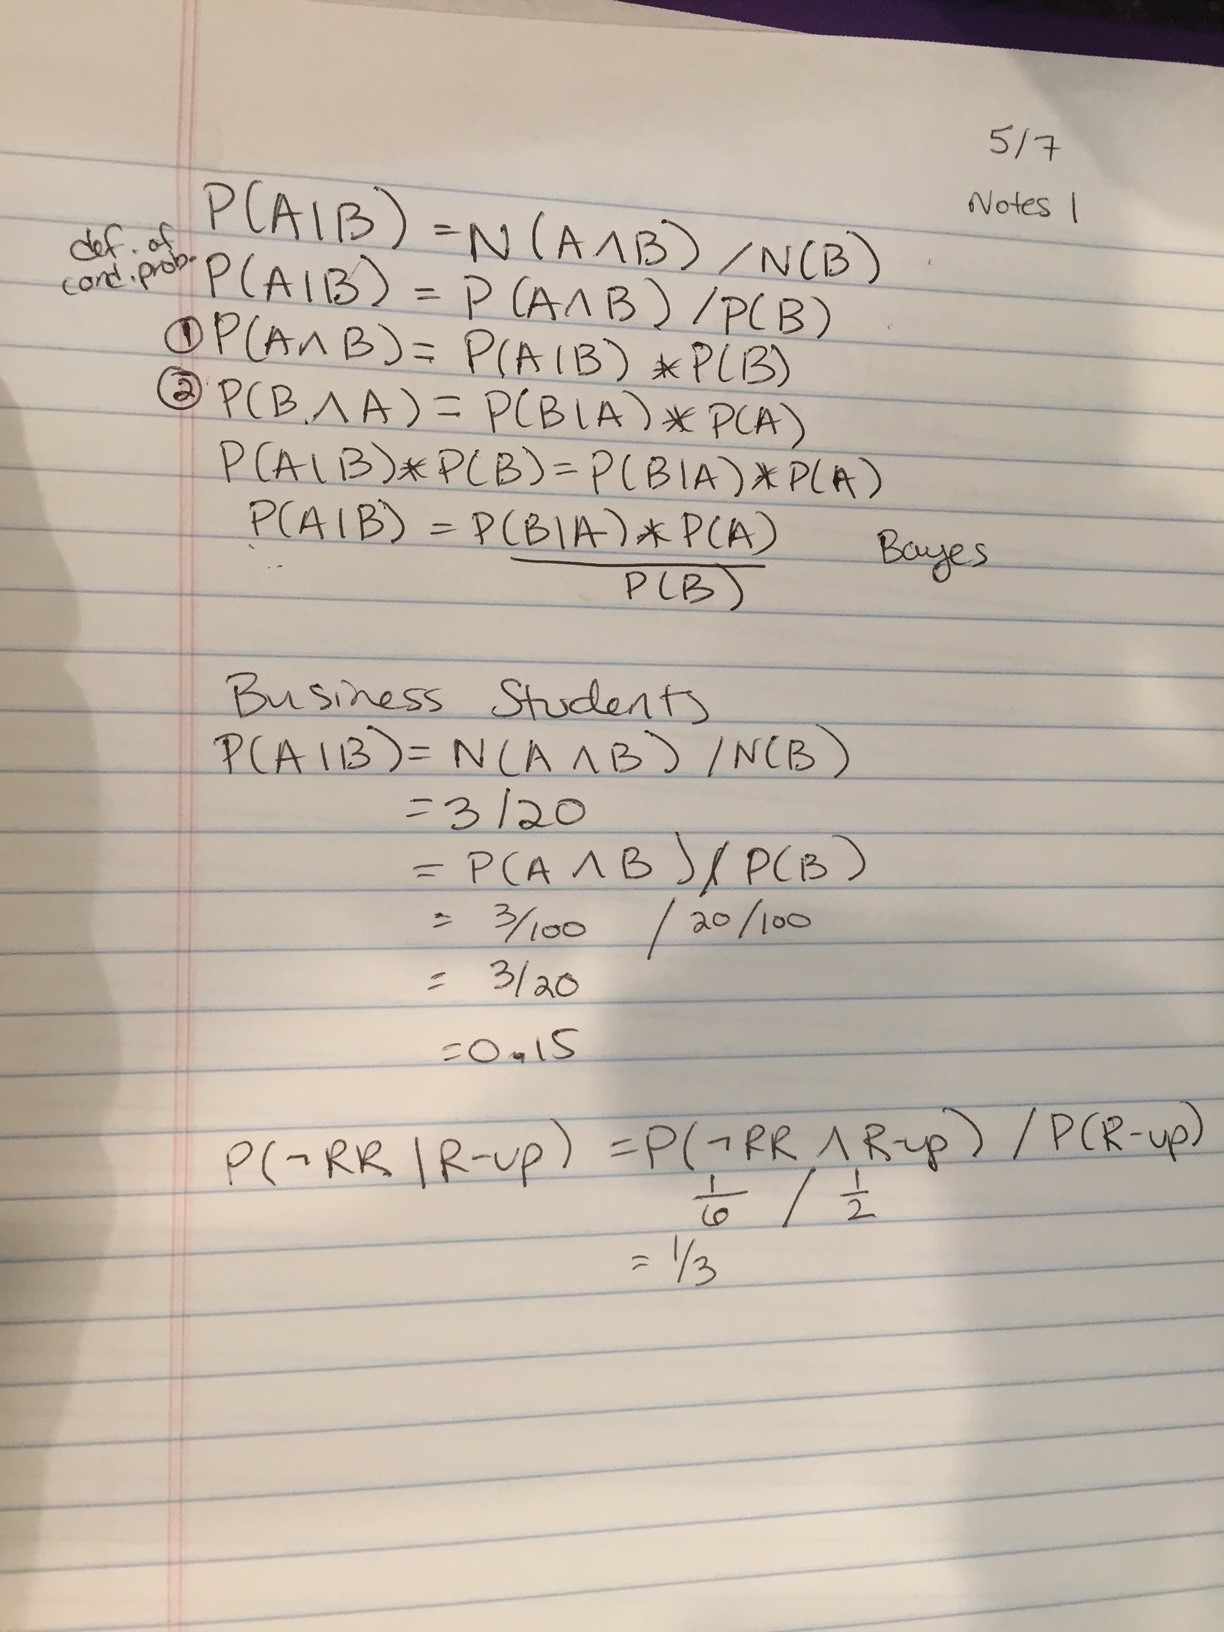 5/7
Notes 1
P(A|B) = N(A∧B) / N(B)
def. of
cond. prob.
P(A|B) = P(A∧B) / P(B)
① P(A∧B) = P(A|B) * P(B)
② P(B∧A) = P(B|A) * P(A)
P(A|B) * P(B) = P(B|A) * P(A)
P(A|B) = P(B|A) * P(A)
Bayes
P(B)
Business Students
P(A|B) = N(A∧B) / N(B)
= 3/20
= P(A∧B) / P(B)
= 3/100 / 20/100
= 3/20
= 0.15
P(¬RR | R-up) = P(¬RR ∧ R-up) / P(R-up)
1/6 / 1/2
= 1/3